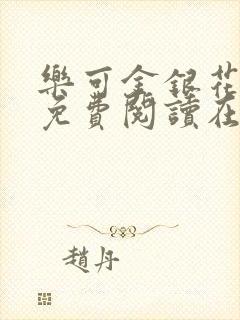 樂可金銀花
免費閱讀在
趙丹